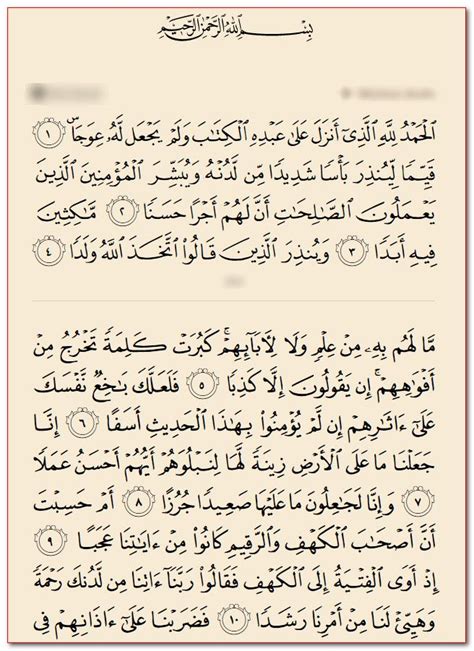 بِسْمِ اللَّهِ الرَّحْمَٰنِ الرَّحِيمِ
الْحَمْدُ لِلَّهِ الَّذِي أَنزَلَ عَلَىٰ عَبْدِهِ الْكِتَابَ وَلَمْ يَجْعَل لَّهُ عِوَجًا ۜ ١
قَيِّمًا لِّيُنذِرَ بَأْسًا شَدِيدًا مِّن لَّدُنْهُ وَيُبَشِّرَ الْمُؤْمِنِينَ الَّذِينَ
يَعْمَلُونَ الصَّالِحَاتِ أَنَّ لَهُمْ أَجْرًا حَسَنًا ٢ مَّاكِثِينَ
فِيهِ أَبَدًا ٣ وَيُنذِرَ الَّذِينَ قَالُوا اتَّخَذَ اللَّهُ وَلَدًا ٤
مَّا لَهُم بِهِ مِنْ عِلْمٍ وَلَا لِآبَائِهِمْ ۚ كَبُرَتْ كَلِمَةً تَخْرُجُ مِنْ
أَفْوَاهِهِمْ ۚ إِن يَقُولُونَ إِلَّا كَذِبًا ٥ فَلَعَلَّكَ بَاخِعٌ نَّفْسَكَ
عَلَىٰ ءَاثَارِهِمْ إِن لَّمْ يُؤْمِنُوا بِهَٰذَا الْحَدِيثِ أَسَفًا ٦ إِنَّا
جَعَلْنَا مَا عَلَى الْأَرْضِ زِينَةً لَّهَا لِنَبْلُوَهُمْ أَيُّهُمْ أَحْسَنُ عَمَلًا
٧ وَإِنَّا لَجَاعِلُونَ مَا عَلَيْهَا صَعِيدًا جُرُزًا ٨ أَمْ حَسِبْتَ
أَنَّ أَصْحَابَ الْكَهْفِ وَالرَّقِيمِ كَانُوا مِنْ ءَايَاتِنَا عَجَبًا ٩
إِذْ أَوَى الْفِتْيَةُ إِلَى الْكَهْفِ فَقَالُوا رَبَّنَا ءَاتِنَا مِن لَّدُنكَ رَحْمَةً
وَهَيِّئْ لَنَا مِنْ أَمْرِنَا رَشَدًا ١٠ فَضَرَبْنَا عَلَىٰ ءَاذَانِهِمْ فِي